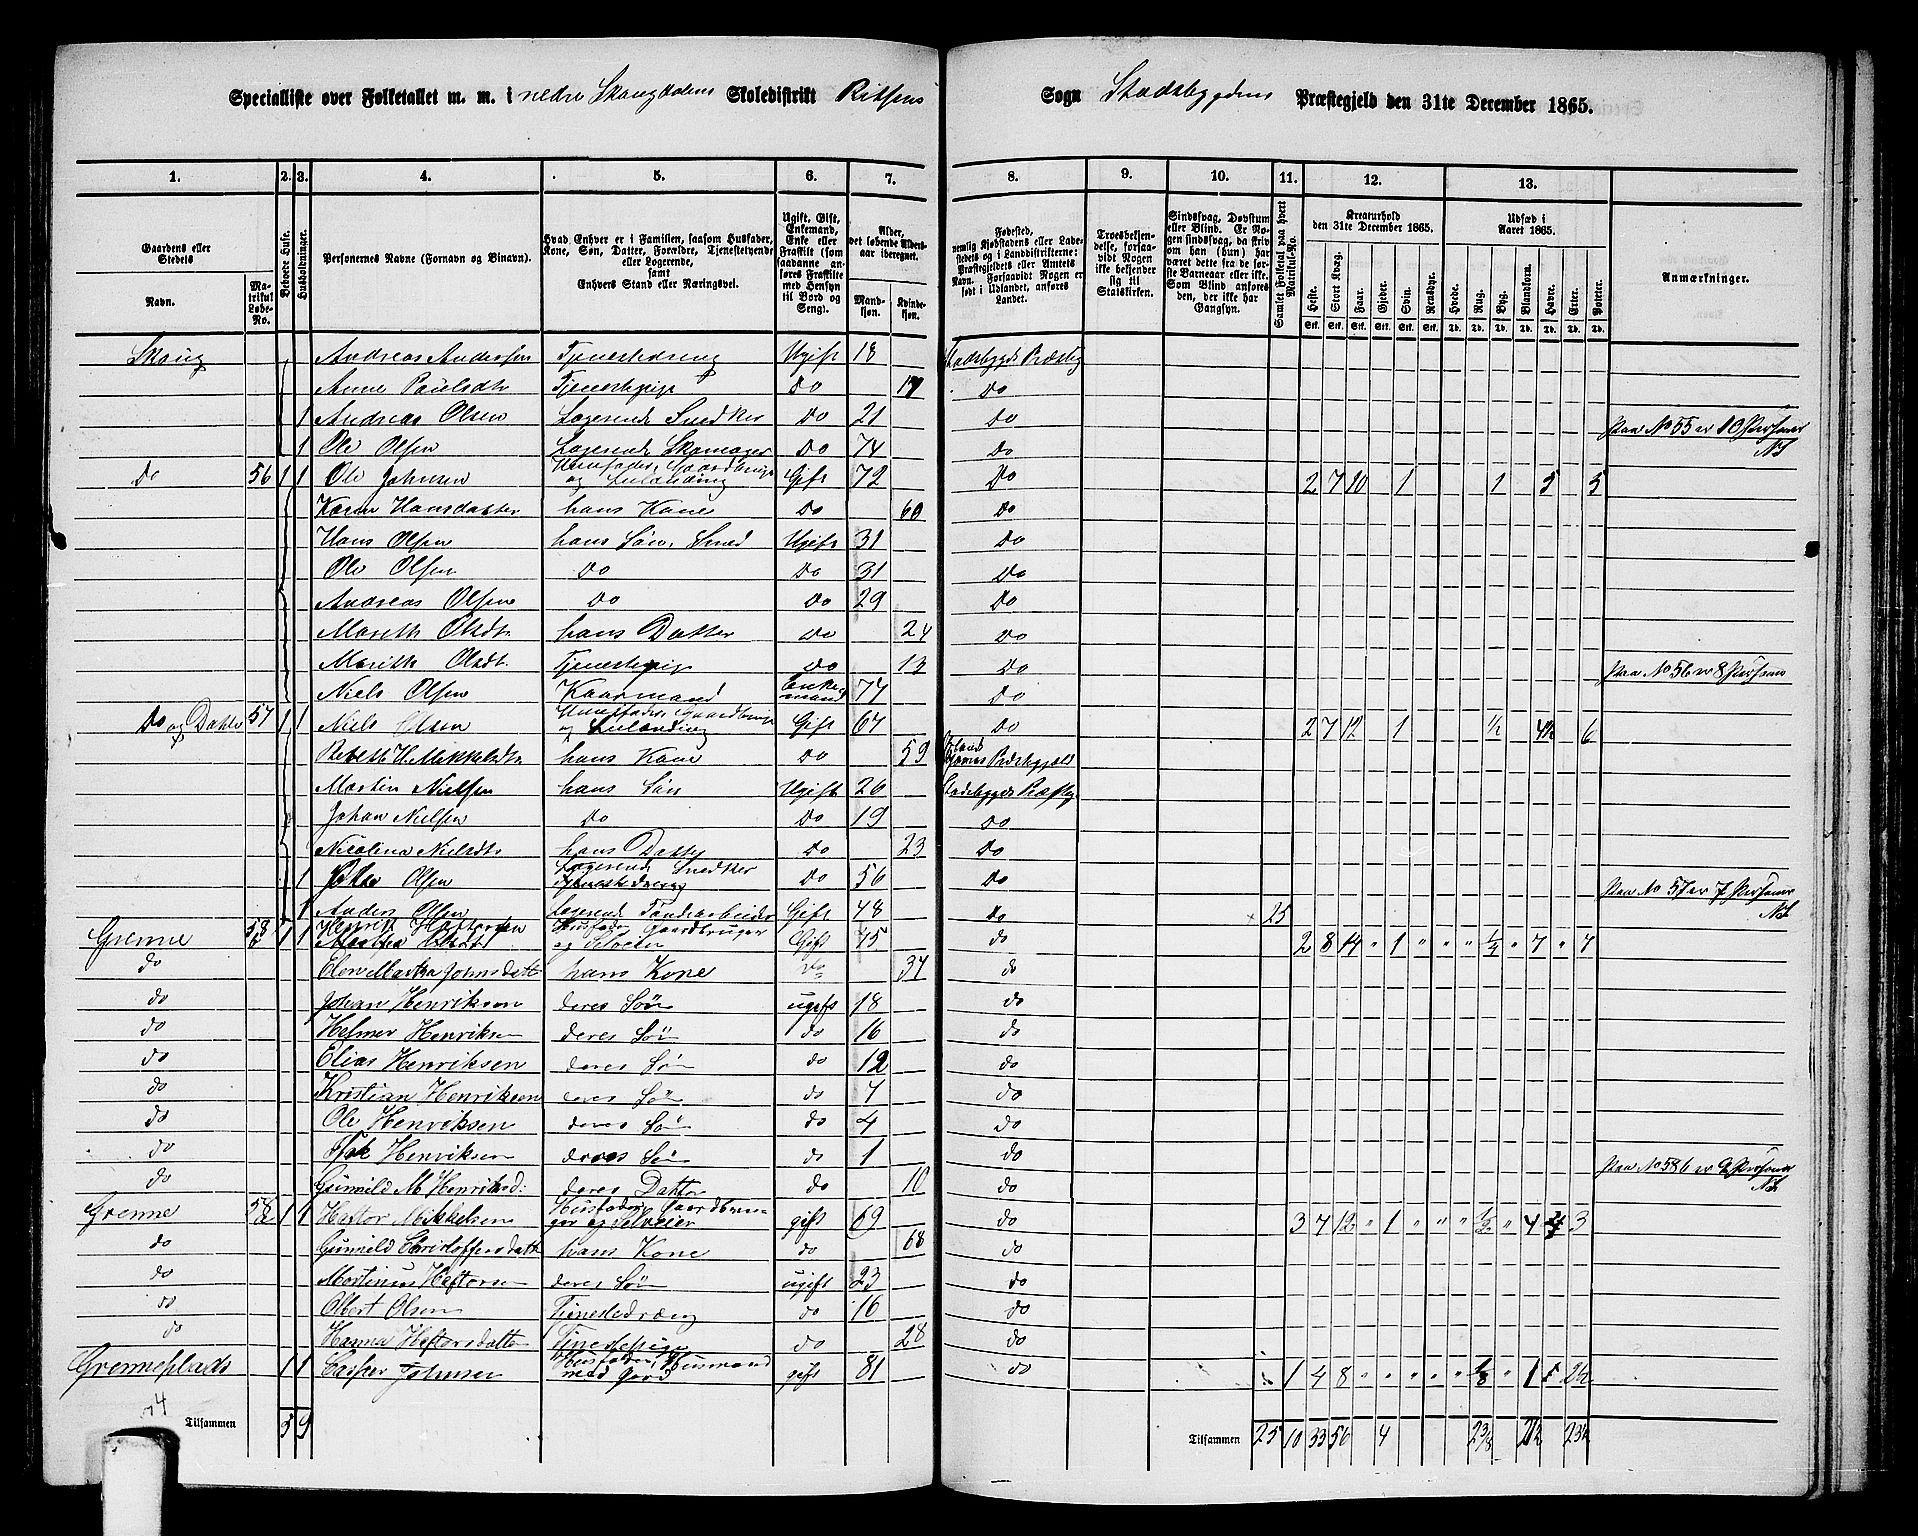 Specialliste over Folketallet m. m. i nedre Skaugdalens Skoledistrikt Rissens Sogn Stadsbygdens Præstegjeld den 31te December 1865.
1. 2. 3. 4. 5. 6. 7. 8. 9. 10. 11. 12. 13.
Gaardens eller Stedets
Navn.
Matrikul Løbe-No.
Beboede Huse.
Husholdninger.
Personernes Navne (Fornavn og Binavn).
Hvad Enhver er i Familien, saasom Husfader, Kone, Søn, Datter, Forældre, Tjenestetyende eller Logerende, samt Enhvers Stand eller Næringsvei.
Ugift, Gift, Enkemand, Enke eller Fraskilt (som saadanne anføres Fraskilte med Hensyn til Bord og Seng).
Alder, det løbende Aldersaar iberegnet.
Mandkøn. Kvindekøn.
Fødested, nemlig Kjøbstadens eller Ladestedets og i Landdistrikterne: Præstegjeldets eller Amtets Navn. Forsaavidt Nogen er født i Udlandet, anføres Landet.
Troesbekjendelse, forsaavidt Nogen ikke bekjender sig til Statskirken.
Sindssvag, Døvstum eller Blind. Er Nogen sindssvag, da skriv om han (hun) har været dette fra de første Barneaar eller ikke. Som Blind anføres den, der ikke har Gangsyn.
Samlet Folketal paa hvert Matrikul-No.
Kreaturhold den 31te December 1865.
Heste. Stort Kvæg. Faar. Gjeder. Svin. Rensdyr.
Udsæd i Aaret 1865.
Hvede. Rug. Byg. Blandkorn. Havre. Erter. Poteter.
Anmærkninger.
Skaug Andreas Andersen Tjenestedreng Ugift 18 Stadsbygds Præstg
Anne Paulsdtr Tjenestepige Do 17 Do
1 Andreas Olsen Logerende Snedker Do 21 Do
1 Ole Olsen Logerende Skomager Do 74 Do Paa No 55 er 10 Personer
Do 56 1 1 Ole Johnsen Huusfader, Gaardbruger og Selveier Gift 72 Do 2 7 10 1 1 5 5
Karen Hansdatter hans Kone Do 60 Do
Hans Olsen hans Søn, Smed Ugift 31 Do
Ole Olsen Do Do 31 Do
Andreas Olsen Do Do 29 Do
Mareth Olsdtr hans Datter Do 24 Do
Marith Olsdtr Tjenestepige Do 13 Do Paa No 56 er 8 Personer
Niels Olsen Kaarmand Enkemand 77 Do
Do og Dahlen 57 1 1 Niels Olsen Gift 67 Do 2 7 12 1 1/2 4½ 6
Mikkelsdtr hans Kone Do 59
Martin Nielsen hans Søn Ugift 26 Stadsbygds Præstg
Johan Nielsen Do Do 19 Do
Nicolina Nielsdtr hans Datter Do 23 Do
1 Olsen Logerende Snedker Do 56 Do Paa No 57 er 7 Personer
1 Anders Olsen Logerende Gift 48 Do 25
Grenne 58 b 1 1 Henrik Hectorsen Husfader Gaardbruger og Selveier Gift 45 do 2 8 14 " 1 " " " 1/2 " 7 " 7
do Elen Martha Johnsdatt hans Kone do 37 do
do Johan Henriksen deres Søn ugift 18 do
do Helmer Henriksen deres Søn do 16 do
do Elias Henriksen deres Søn do 12 do
do Kristian Henriksen deres Søn do 7 do
do Ole Henriksen deres Søn do 4 do
do Henriksen deres Søn do 1 do
do Gunnild M Henriksd: deres Datter do 10 do Paa No 58 b er 9 Personer
Grenne 58 a 1 1 Hektor Mikkelsen Husfader, Gaardbruger og Selveier gift 69 do 3 7 12 " 1 " " " 1/2 " 4 3
do Gunnild Christoffersdatt hans Kone do 68 do
do Martinus Hektorsen deres Søn ugift 23 do
do Olbert Olsen Tjenestedreng do 16 do
do Hanna Hektorsdatter Tjenestepige do 28 do
Grenneplads 1 1 Casper Johnsen Husfader, Husmand med Jord gift 81 do 1 4 8 " " " " " 1/8 " 1 2½
74
Tilsammen 5 9
Tilsammen 25 10 33 56 4 2⅝ 21½ 23½